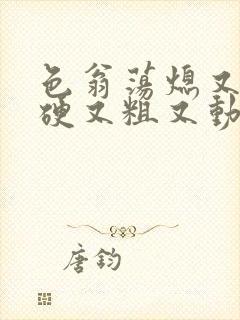 色翁荡熄又
硬又粗又動
唐钧